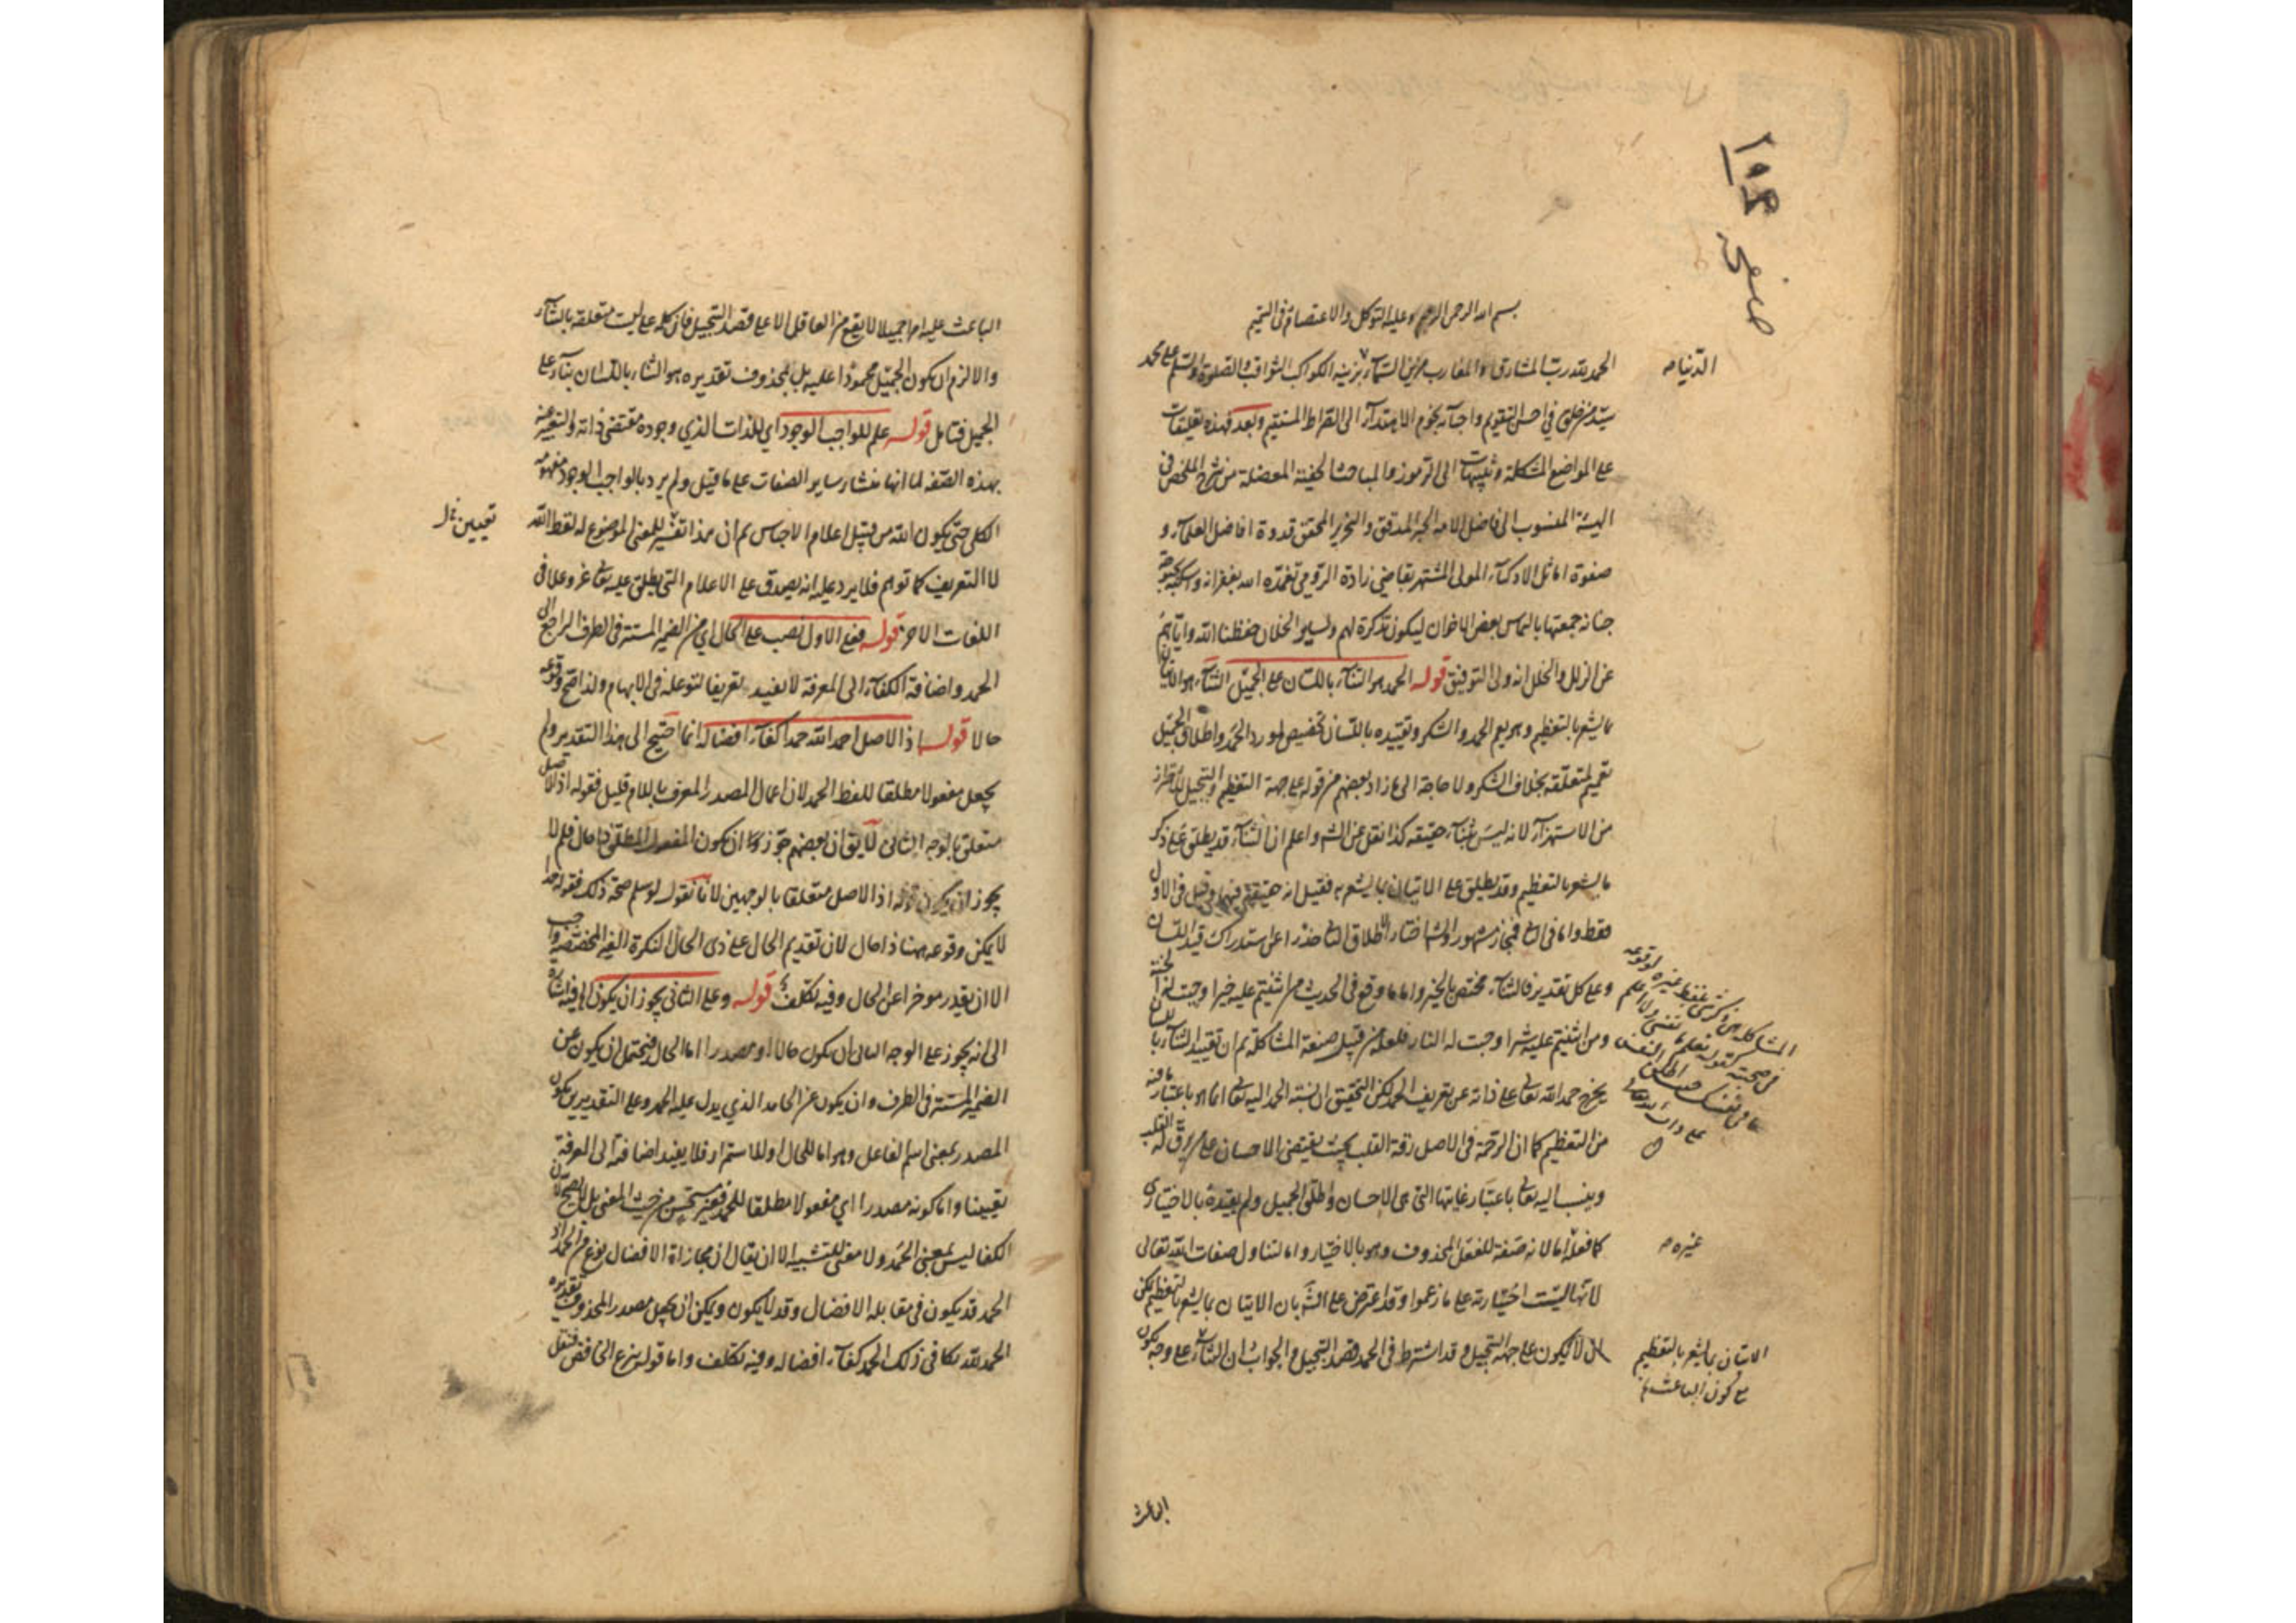 ١٩٤
صفحه
بسم الله الرحمن الرحيم وعليه التوكل والاعتصام في التتميم
الحمد لله رب المشارق والمغارب مزين السماء بزينة الكواكب الثواقب والصلوة والسلم على محمد
الدنيا صح
سيد من خلق في احسن التقويم واحبائه نجوم الاهتداء الى الصراط المستقيم وبعد فهذه تعليقات
على المواضع المشكلة وتنبيهات الى الرموز والمباحث الخفية المعضلة من شرح الملخص في
الهيئة المنسوب الى فاضل الامة الحبر المدقق والنحرير المحقق قدوة افاضل العلماء و
صفوة اماثل الاذكياء المولى المشتهر بقاضي زادة الرومي تغمده الله بغفرانه واسكنه بحبوحة
جنانه جمعتها بالتماس بعض الاخوان ليكون تذكرة لهم ولساير الخلان حفظنا الله واياهم
عن الزلل والخلل انه ولي التوفيق قوله الحمد هو الثناء باللسان على الجميل الثناء هو الاتيان
بما يشعر بالتعظيم وهو يعم الحمد والشكر وتقييده باللسان تخصيص لمورد الحمد واطلاق الجميل
تعميم لمتعلقه بخلاف الشكر ولا حاجة الى ما زاد بعضهم من قوله على جهة التعظيم والتبجيل للاحتراز
من الاستهزاء لانه ليس بثناء حقيقة كذا نقل عن الشه واعلم ان الثناء قد يطلق على ذكر
ما يشعر بالتعظيم وقد يطلق على الاتيان بما يشعر به فقيل انه حقيقة فيهما وقيل في الاول
فقط واما في الثاني فمجاز مشهور والشه اختار اطلاق الثاني حذرا عن استدراك قيد اللسان
وعلى كل تقدير فالثناء مختص بالخير واما ما وقع في الحديث من اثنيتم عليه خيرا وجبت له الجنة
ومن اثنيتم عليه شرا وجبت له النار فلعله من قبيل صنعة المشاكلة ثم ان تقييد الثناء باللسان
المشاكلة هي ذكر شيء بلفظ غيره لوقوعه
في صحبته كقوله تعلم ما في نفسي ولا اعلم
ما في نفسك حيث اطلق النفس
على ذات الله تعالى
يخرج حمد الله تعالى على ذاته عن تعريف الحمد لكن التحقيق ان نسبة الحمد اليه تعالى انما هو باعتبار ما فيه
من التعظيم كما ان الرحمة في الاصل رقة القلب بحيث يقتضي الاحسان على من رق له القلب
وينسب اليه تعالى باعتبار غايتها التي هي الاحسان واطلق الجميل ولم يقيده بالاختياري
كما فعل اما لانه صفة للفعل المحذوف وهو بالاختيار واما لتناول صفات الله تعالى
غيره صح
لانها ليست اختيارية على ما زعموا وقد اعترض على الشه بان الاتيان بما يشعر بالتعظيم يمكن
ان لا يكون على جهة التبجيل وقد اشترط في الحمد قصد التبجيل والجواب ان الثناء على وجه يكون
الاتيان بما يشعر بالتعظيم
مع كون الباعث
الباعث
الباعث عليه امرا جميلا لا يقع من العاقل الا على قصد التبجيل فان كلمة على ليست متعلقة بالثناء
والا لزم ان يكون الجميل محمودا عليه بل بمحذوف تقديره هو الثناء باللسان بناء على
الجميل فتامل قوله علم للواجب الوجود اي للذات الذي وجوده مقتضى ذاته والتعبير عنه
بهذه الصفة لما انها منشأ ساير الصفات على ما قيل ولم يرد بالواجب الوجود مفهومه
الكلي حتى يكون الله من قبيل اعلام الاجناس ثم ان هذا تفسير للمعنى الموضوع له لفظ الله
تعيين
لا التعريف كما توهم فلا يرد عليه انه يصدق على الاعلام التي يطلق عليه تعالى عز وعلا في
اللغات الاخر قوله فعلى الاول نصب على الحال اي من الضمير المستتر في الظرف الراجع الى
الحمد واضافة الكفاء الى المعرفة لا يفيد تعريفا لتوغله في الابهام ولذا صح وقوعه
حالا قوله اذ الاصل احمد الله حمدا كفاء افضاله انما احتيج الى هذا التقدير ولم
يجعل مفعولا مطلقا للفظ الحمد لان اعمال المصدر المعرف باللام قليل فقوله اذ الاصل
متعلق بالوجه الثاني لا يق ان بعضهم جوزوا ان يكون المفعول المطلق ذا حال فلم لا
يجوز ان يكون قوله اذ الاصل متعلقا بالوجهين لانا نقول لو سلم صحة ذلك فقوله حمدا
لا يمكن وقوعه ههنا ذا حال لان تقديم الحال على ذي الحال النكرة الغير المختصة واجب
الا ان يقدر موخرا عن الحال وفيه تكلف قوله وعلى الثاني يجوز ان يكون الخ فيه اشارة
الى انه يجوز على الوجه الثاني ان يكون حالا او مصدرا اما الحال فيحتمل ان يكون عن
الضمير المستتر في الظرف وان يكون عن الحامد الذي يدل عليه الحمد وعلى التقديرين يكون
المصدر بمعنى اسم الفاعل وهو اما للحال او للاستمرار فلا يفيد اضافته الى المعرفة
تعيينا واما كونه مصدرا اي مفعولا مطلقا للحمد فغير مستحسن من حيث المعنى بل لا يصح لان
الكفا ليس بمعنى الحمد ولا معنى للتشبيه الا ان يقال ان مجازاة الافضال نوع من الحمد اذ
الحمد قد يكون في مقابلة الافضال وقد لا يكون ويمكن ان يجعل مصدر المحذوف تقديره
الحمد لله يكافي ذلك الحمد كفاء افضاله وفيه تكلف واما قوله بنزع الخافض فتعلق